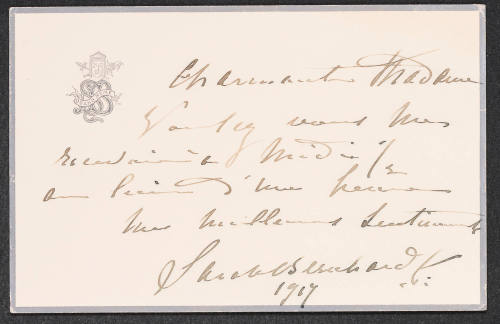 Charmante Madame
Voulez vous me
recevoir à Midi ½
au lieu d'une heure
Mes meilleurs sentiments
Sarah Bernhardt
1917